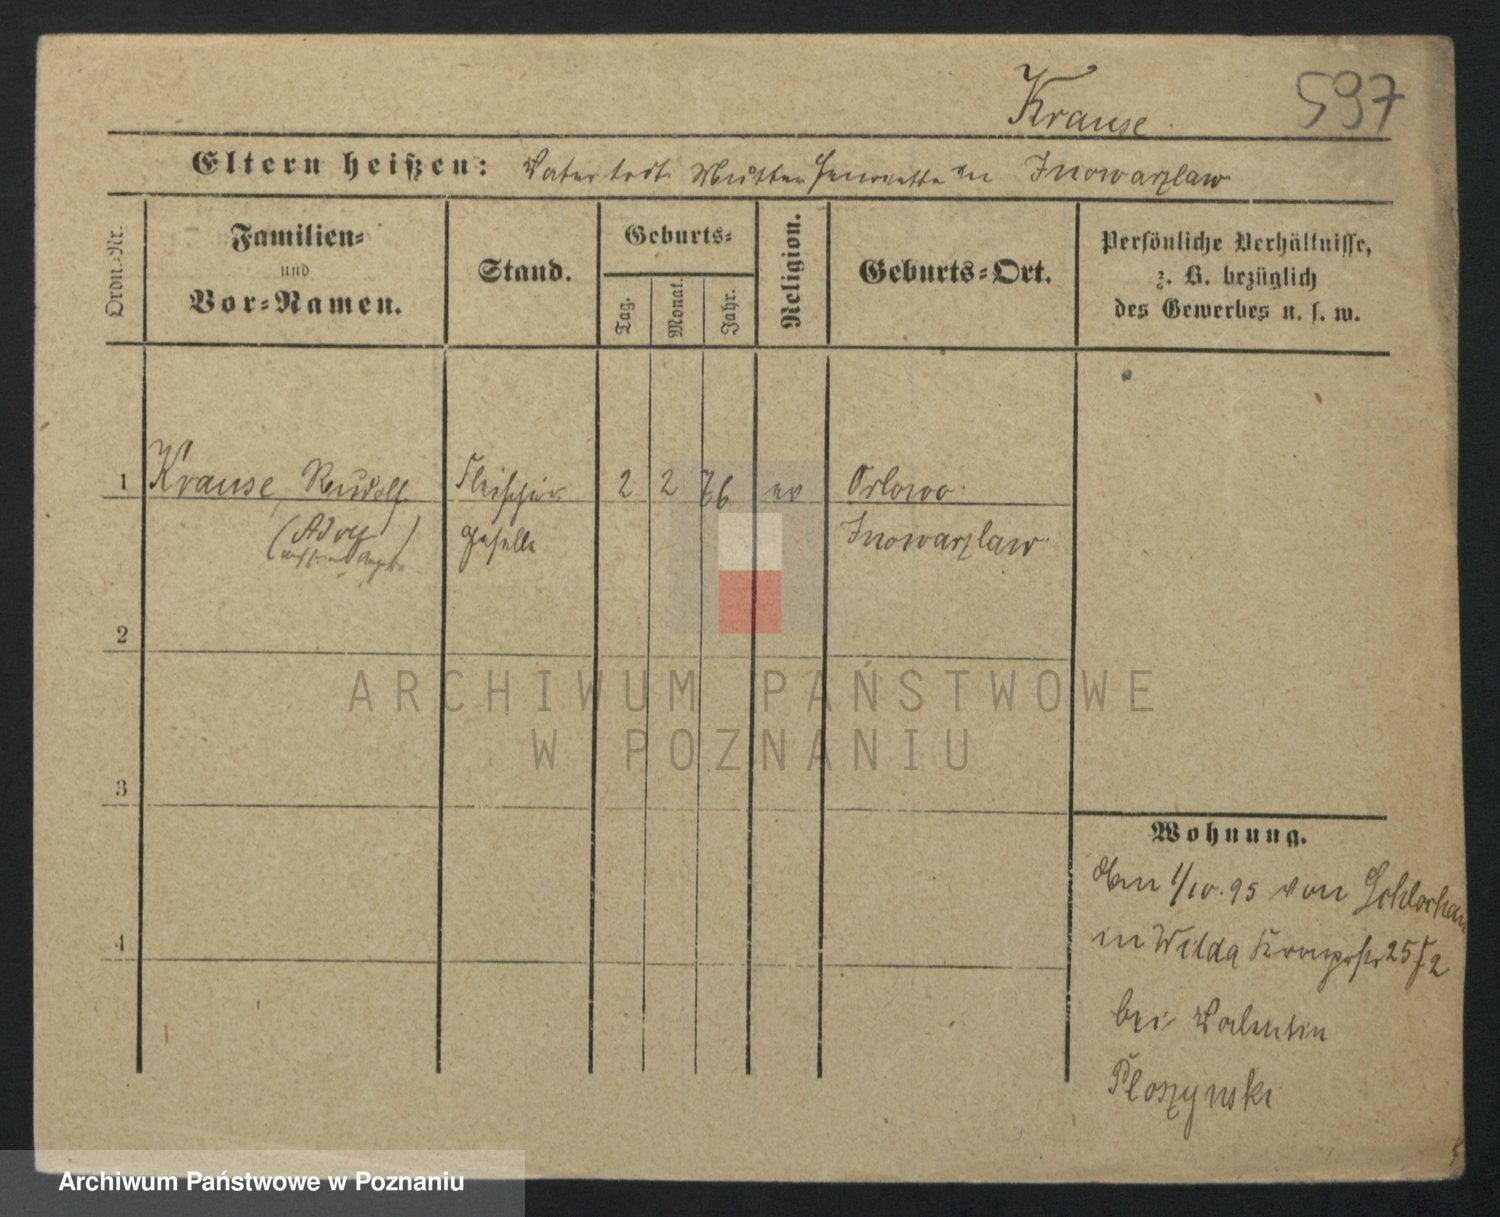 Krause.
597
Eltern heißen: Vater todt. Mutter Henriette in Inowarzlaw
Ordn.-Nr.
Familien-
und
Vor-Namen.
Stand.
Geburts-
Tag.
Monat.
Jahr.
Religion.
Geburts-Ort.
Persönliche Verhältnisse,
z. B. bezüglich
des Gewerbes u. s. w.
1 Krause, Rudolf Fleischer 2 2 76 ev Orlowo.
(Adolf) geselle Inowarzlaw.
2
3
4
Wohnung.
1/10.95 von Schlochau
in Wilda 25 I 2
bei Valentin
Ploszynski
ARCHIWUM PAŃSTWOWE
W POZNANIU
Archiwum Państwowe w Poznaniu